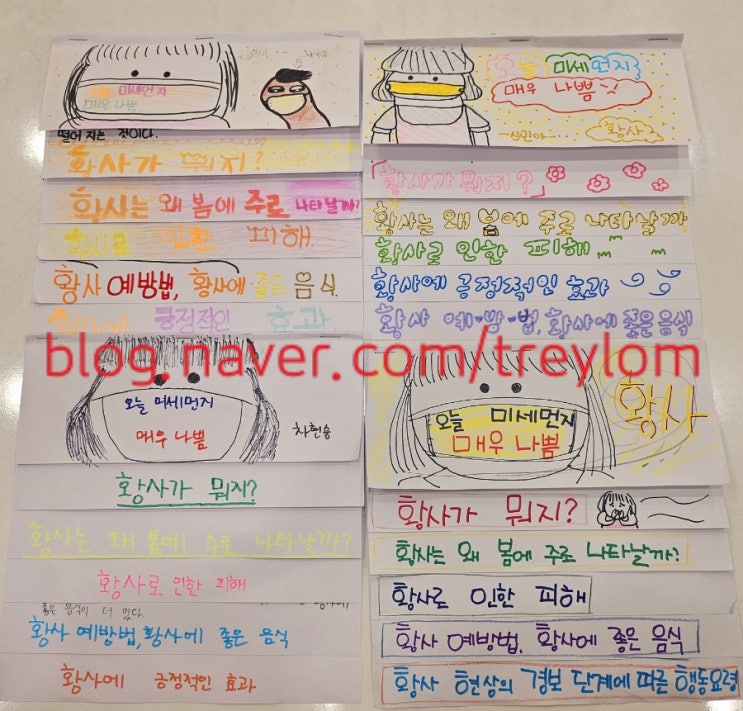 오늘 미세먼지
매우 나쁨
떨어 지는 것이다.
황사가 뭐지?
황사는 왜 봄에 주로 나타날까?
황사로 인한 피해
황사 예방법, 황사에 좋은 음식
긍정적인 효과
오늘 미세먼지
매우 나쁨
황사
「황사가 뭐지?」
황사는 왜 봄에 주로 나타날까
황사로 인한 피해
황사에 긍정적인 효과
황사 예-방-법, 황사에 좋은 음식
blog.naver.com/treylom
오늘 미세먼지
매우 나쁨
차현송
황사가 뭐지?
황사는 왜 봄에 주로 나타날까?
황사로 인한 피해
좋은 음식이 더 있다.
황사 예방법, 황사에 좋은 음식
황사에 긍정적인 효과
오늘 미세먼지
매우 나쁨
황사
황사가 뭐지?
황사는 왜 봄에 주로 나타날까?
황사로 인한 피해
황사 예방법, 황사에 좋은 음식
황사 현상의 경보 단계에 따른 행동요령